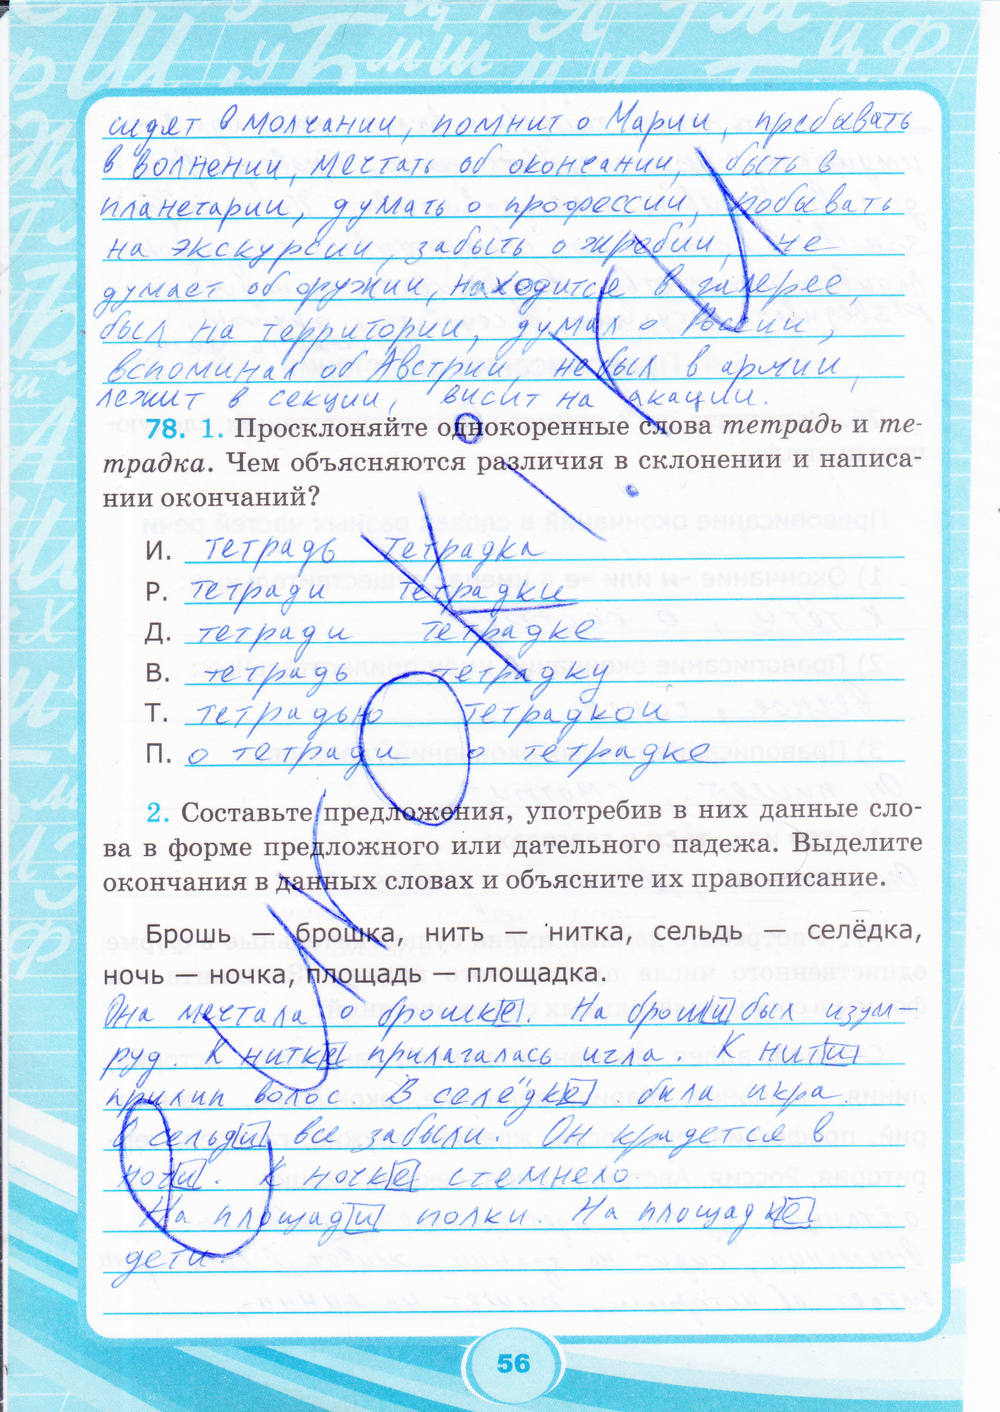 сидят в молчании, помнит о Марии, пребывать
в волнении, мечтать об окончании, быть в
планетарии, думать о профессии, побывать
на экскурсии, забыть о жребии, не
думает об оружии, находится в галерее,
был на территории, думал о России,
вспоминал об Австрии, не был в армии,
лежит в секции, висит на акации.
78. 1. Просклоняйте однокоренные слова тетрадь и те-
традка. Чем объясняются различия в склонении и написа-
нии окончаний?
И. тетрадь тетрадка
Р. тетради тетрадки
Д. тетради тетрадке
В. тетрадь тетрадку
Т. тетрадью тетрадкой
П. о тетради о тетрадке
2. Составьте предложения, употребив в них данные сло-
ва в форме предложного или дательного падежа. Выделите
окончания в данных словах и объясните их правописание.
Брошь — брошка, нить — нитка, сельдь — селёдка,
ночь — ночка, площадь — площадка.
Она мечтала о брошке. На броши был изум-
руд. К нитке прилагалась игла. К нити
прилип волос. В селёдке была икра.
О сельди все забыли. Он крадется в
ночи. К ночке стемнело
На площади полки. На площадке
дети.
56